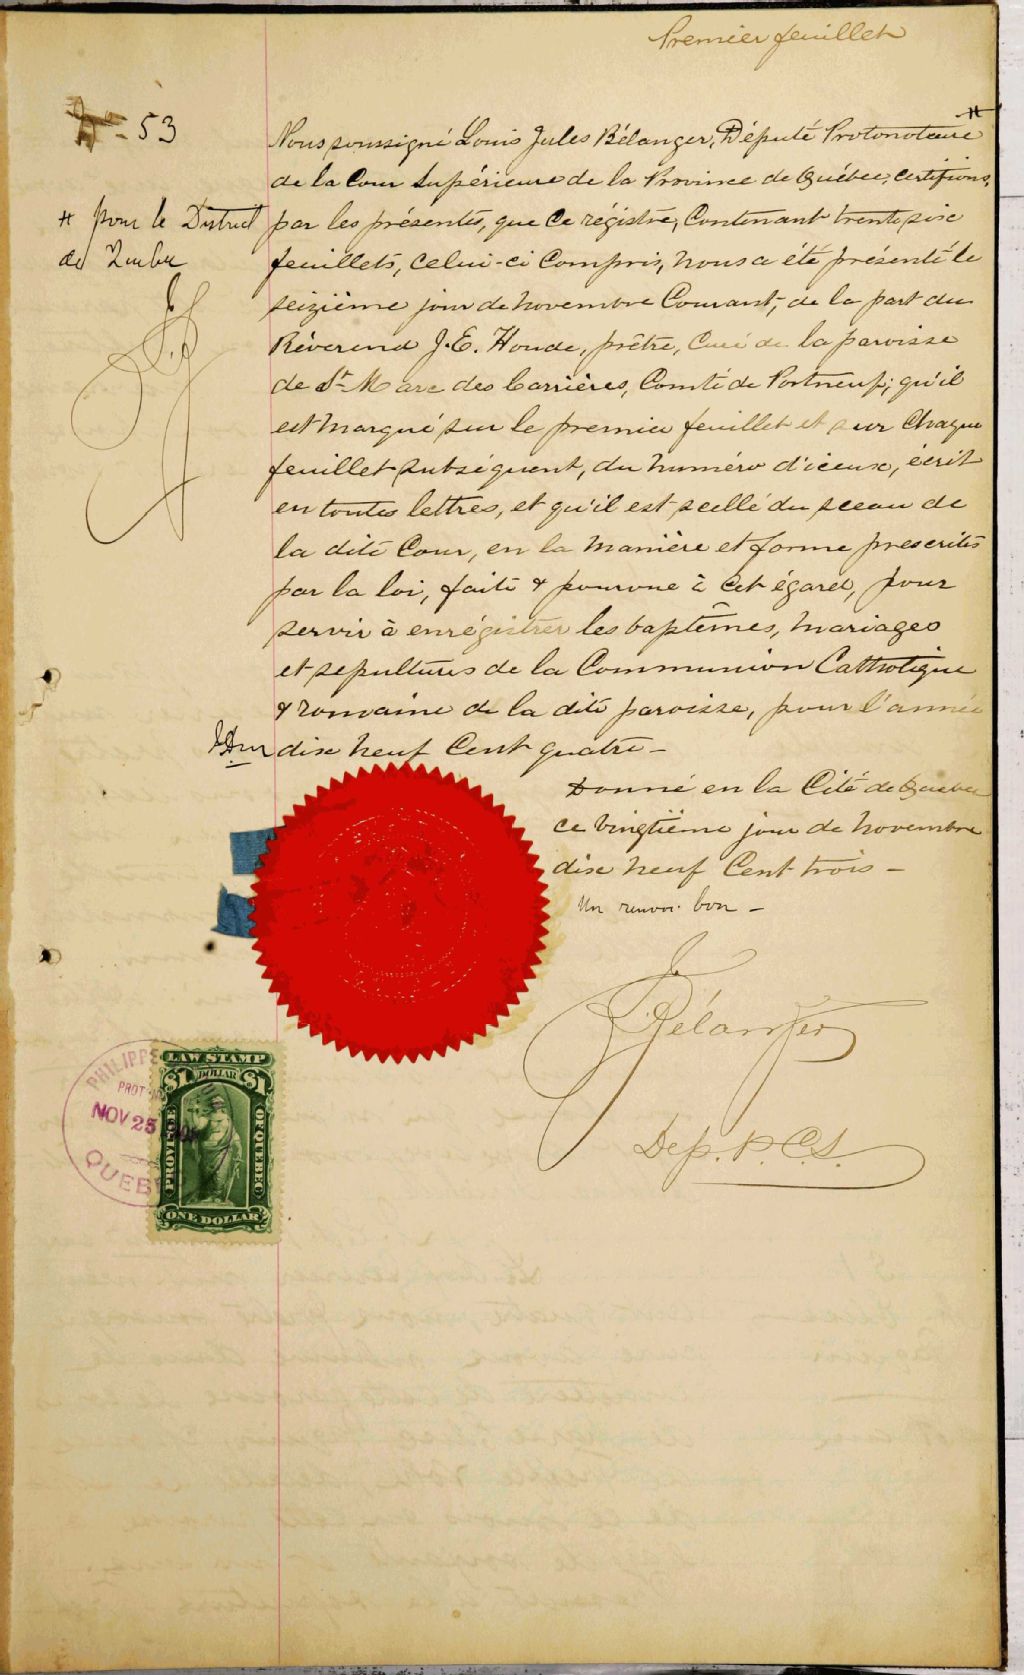 Premier feuillet
53
Nous soussigné Louis Jules Bélanger, Député Protonotaire
de la Cour Supérieure de la Province de Québec, certifions,
# pour le District
de Québec
par les présentes, que ce régistre, Contenant trente six
feuillets, celui-ci compris, nous a été présenté le
seizième jour de novembre Courant, de la part du
Révérend J.E. Houde, prêtre, Curé de la paroisse
de St Marc des Carrières, Comté de Portneuf; qu'il
est marqué sur le premier feuillet et sur Chaque
feuillet subséquent, du numéro d'iceux, écrit
en toutes lettres, et qu'il est scellé du sceau de
la dite Cour, en la manière et forme prescrites
par la loi, faite & pourvue à cet égard, pour
servir à enrégistrer les baptêmes, mariages
et sépultures de la Communion Catholique
& romaine de la dite paroisse, pour l'année
dix neuf Cent quatre -
Donné en la Cité de Québec
ce vingtième jour de novembre
dix neuf Cent trois -
Un renvoi bon -
Bélanger
Dep. P.C.S.
PHILIPPE
PROT
NOV 25
QUEB
LAW STAMP
$1 DOLLAR $1
PROVINCE
OF QUEBEC
ONE DOLLAR